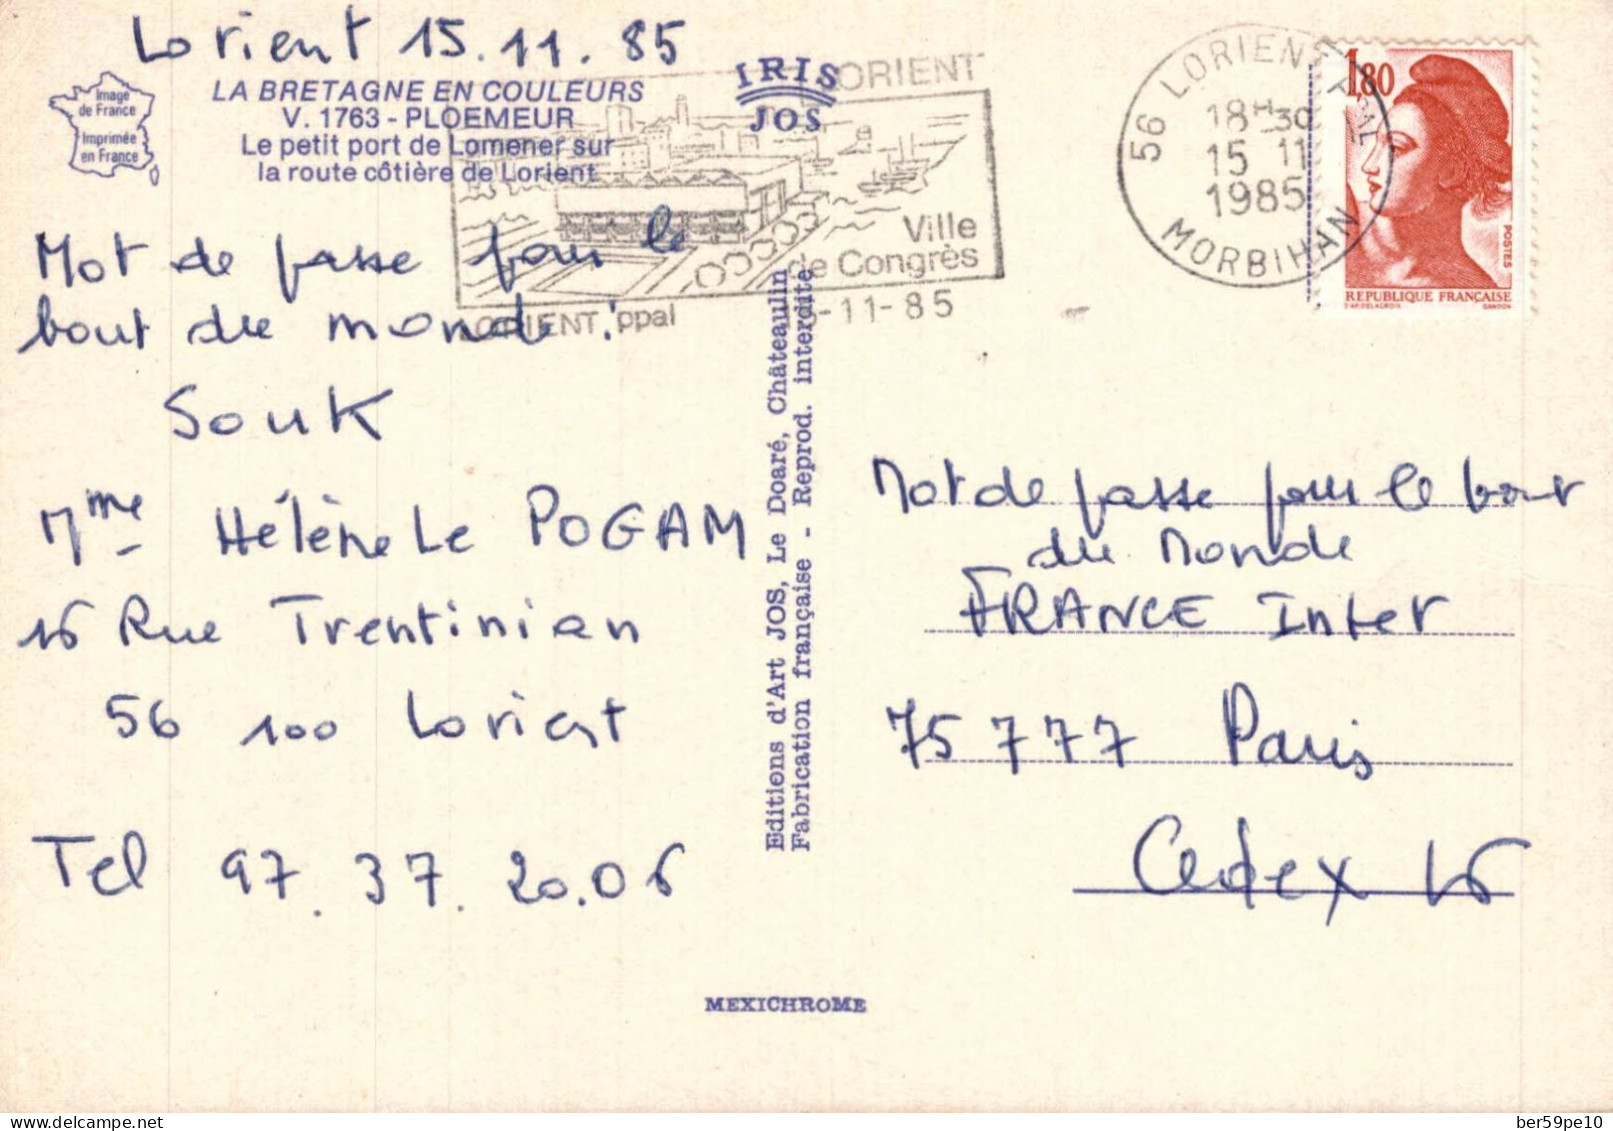 Lorient 15.11.85
Image
de France
Imprimée
en France
LA BRETAGNE EN COULEURS
V. 1763 - PLOEMEUR
Le petit port de Lomener sur
la route côtière de Lorient
IRIS
JOS
LORIENT
Ville
de Congrès
LORIENT ppal
-11-85
56 LORIENT PPAL
18H30
15 11
1985
MORBIHAN
1,80
POSTES
REPUBLIQUE FRANÇAISE
D'AP. DELACROIX GANDON
Mot de passe pour le
bout du monde :
Souk
Mme Hélène Le POGAM
16 Rue Trentinian
56 100 Lorient
Tel 97.37.20.06
Editions d'Art JOS, Le Doaré, Châteaulin
Fabrication française - Reprod. interdite
Mot de passe pour le bout
du Monde
FRANCE Inter
75777 Paris
Cedex 16
MEXICHROME
delcampe.net
ber59pe10